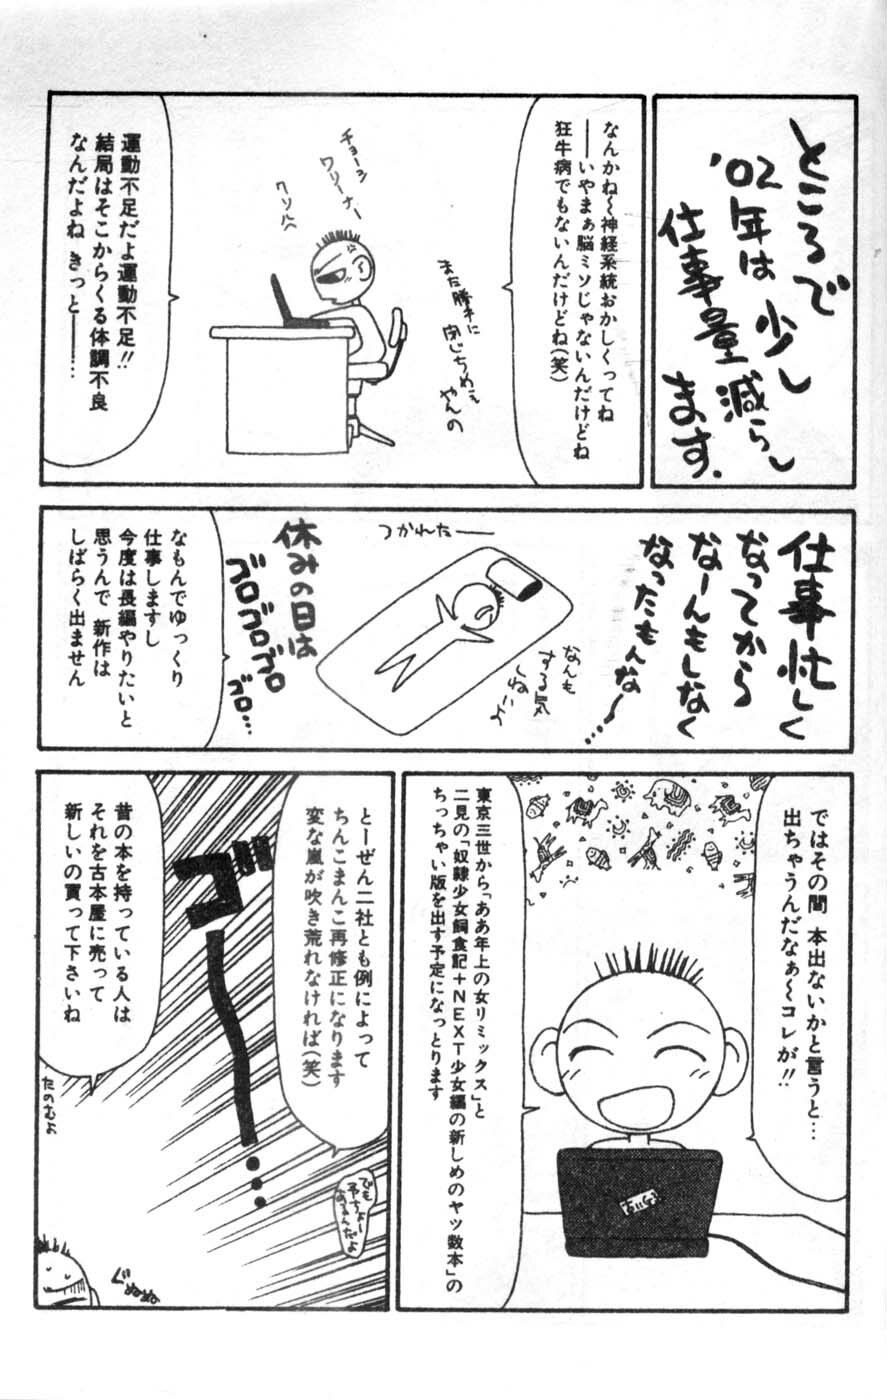 ところで
'02年は少し
仕事量減らし
ます.
なんかね〜神経系統おかしくってね
――いやまぁ脳ミソじゃないんだけどね
狂牛病でもないんだけどね(笑)
また勝手に
閉じちめぇ
やんの
チョーシ
ワリーナー
クソルヘ
運動不足だよ運動不足!!
結局はそこからくる体調不良
なんだよね きっと――…
仕事忙しく
なってから
なーんもしなく
なったもんな〜…
つかれたー
なんも
する気
しねーよ
休みの日は
ゴロゴロゴロ
ゴロ…
なもんでゆっくり
仕事しますし
今度は長編やりたいと
思うんで 新作は
しばらく出ません
ではその間 本出ないかと言うと…
出ちゃうんだなぁ〜コレが!!
東京三世から「ああ年上の女リミックス」と
二見の「奴隷少女飼食記+NEXT少女編の新しめのヤツ数本」の
ちっちゃい版を出す予定になっとります
とーぜん二社とも例によって
ちんこまんこ再修正になります
変な嵐が吹き荒れなければ(笑)
ゴー…
でも
予ちょー
あるんだよ
昔の本を持っている人は
それを古本屋に売って
新しいの買って下さいね
たのむよ
ぐぬぬぬ